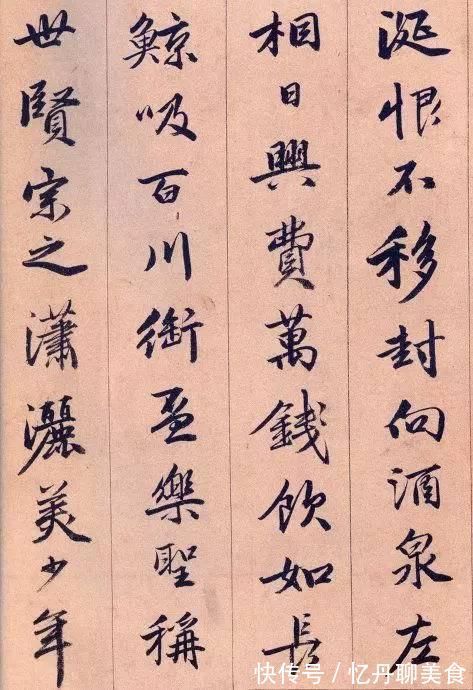 涎恨不移封向酒泉左
相日興費萬錢飲如長
鯨吸百川銜盃樂聖稱
世賢宗之瀟灑美少年
快传号/忆丹聊美食